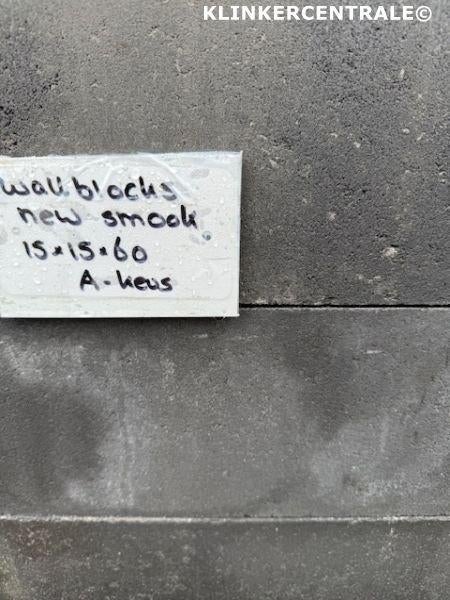 KLINKERCENTRALE©
wallblocks
new smook
15x15x60
A-keus